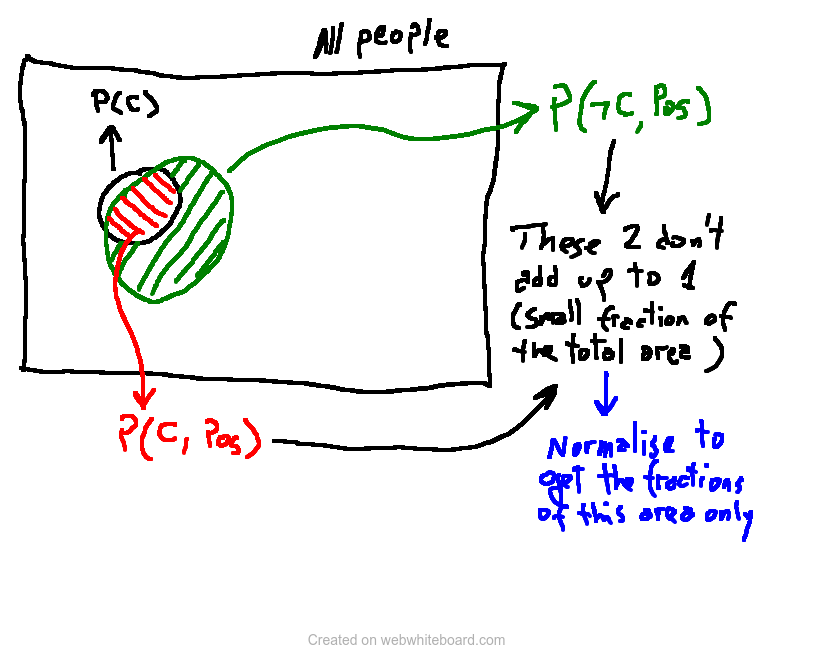 All people
P(C)
P(¬C, Pos)
These 2 don't
add up to 1
(small fraction of
the total area)
P(C, Pos)
Normalise to
get the fractions
of this area only
Created on webwhiteboard.com